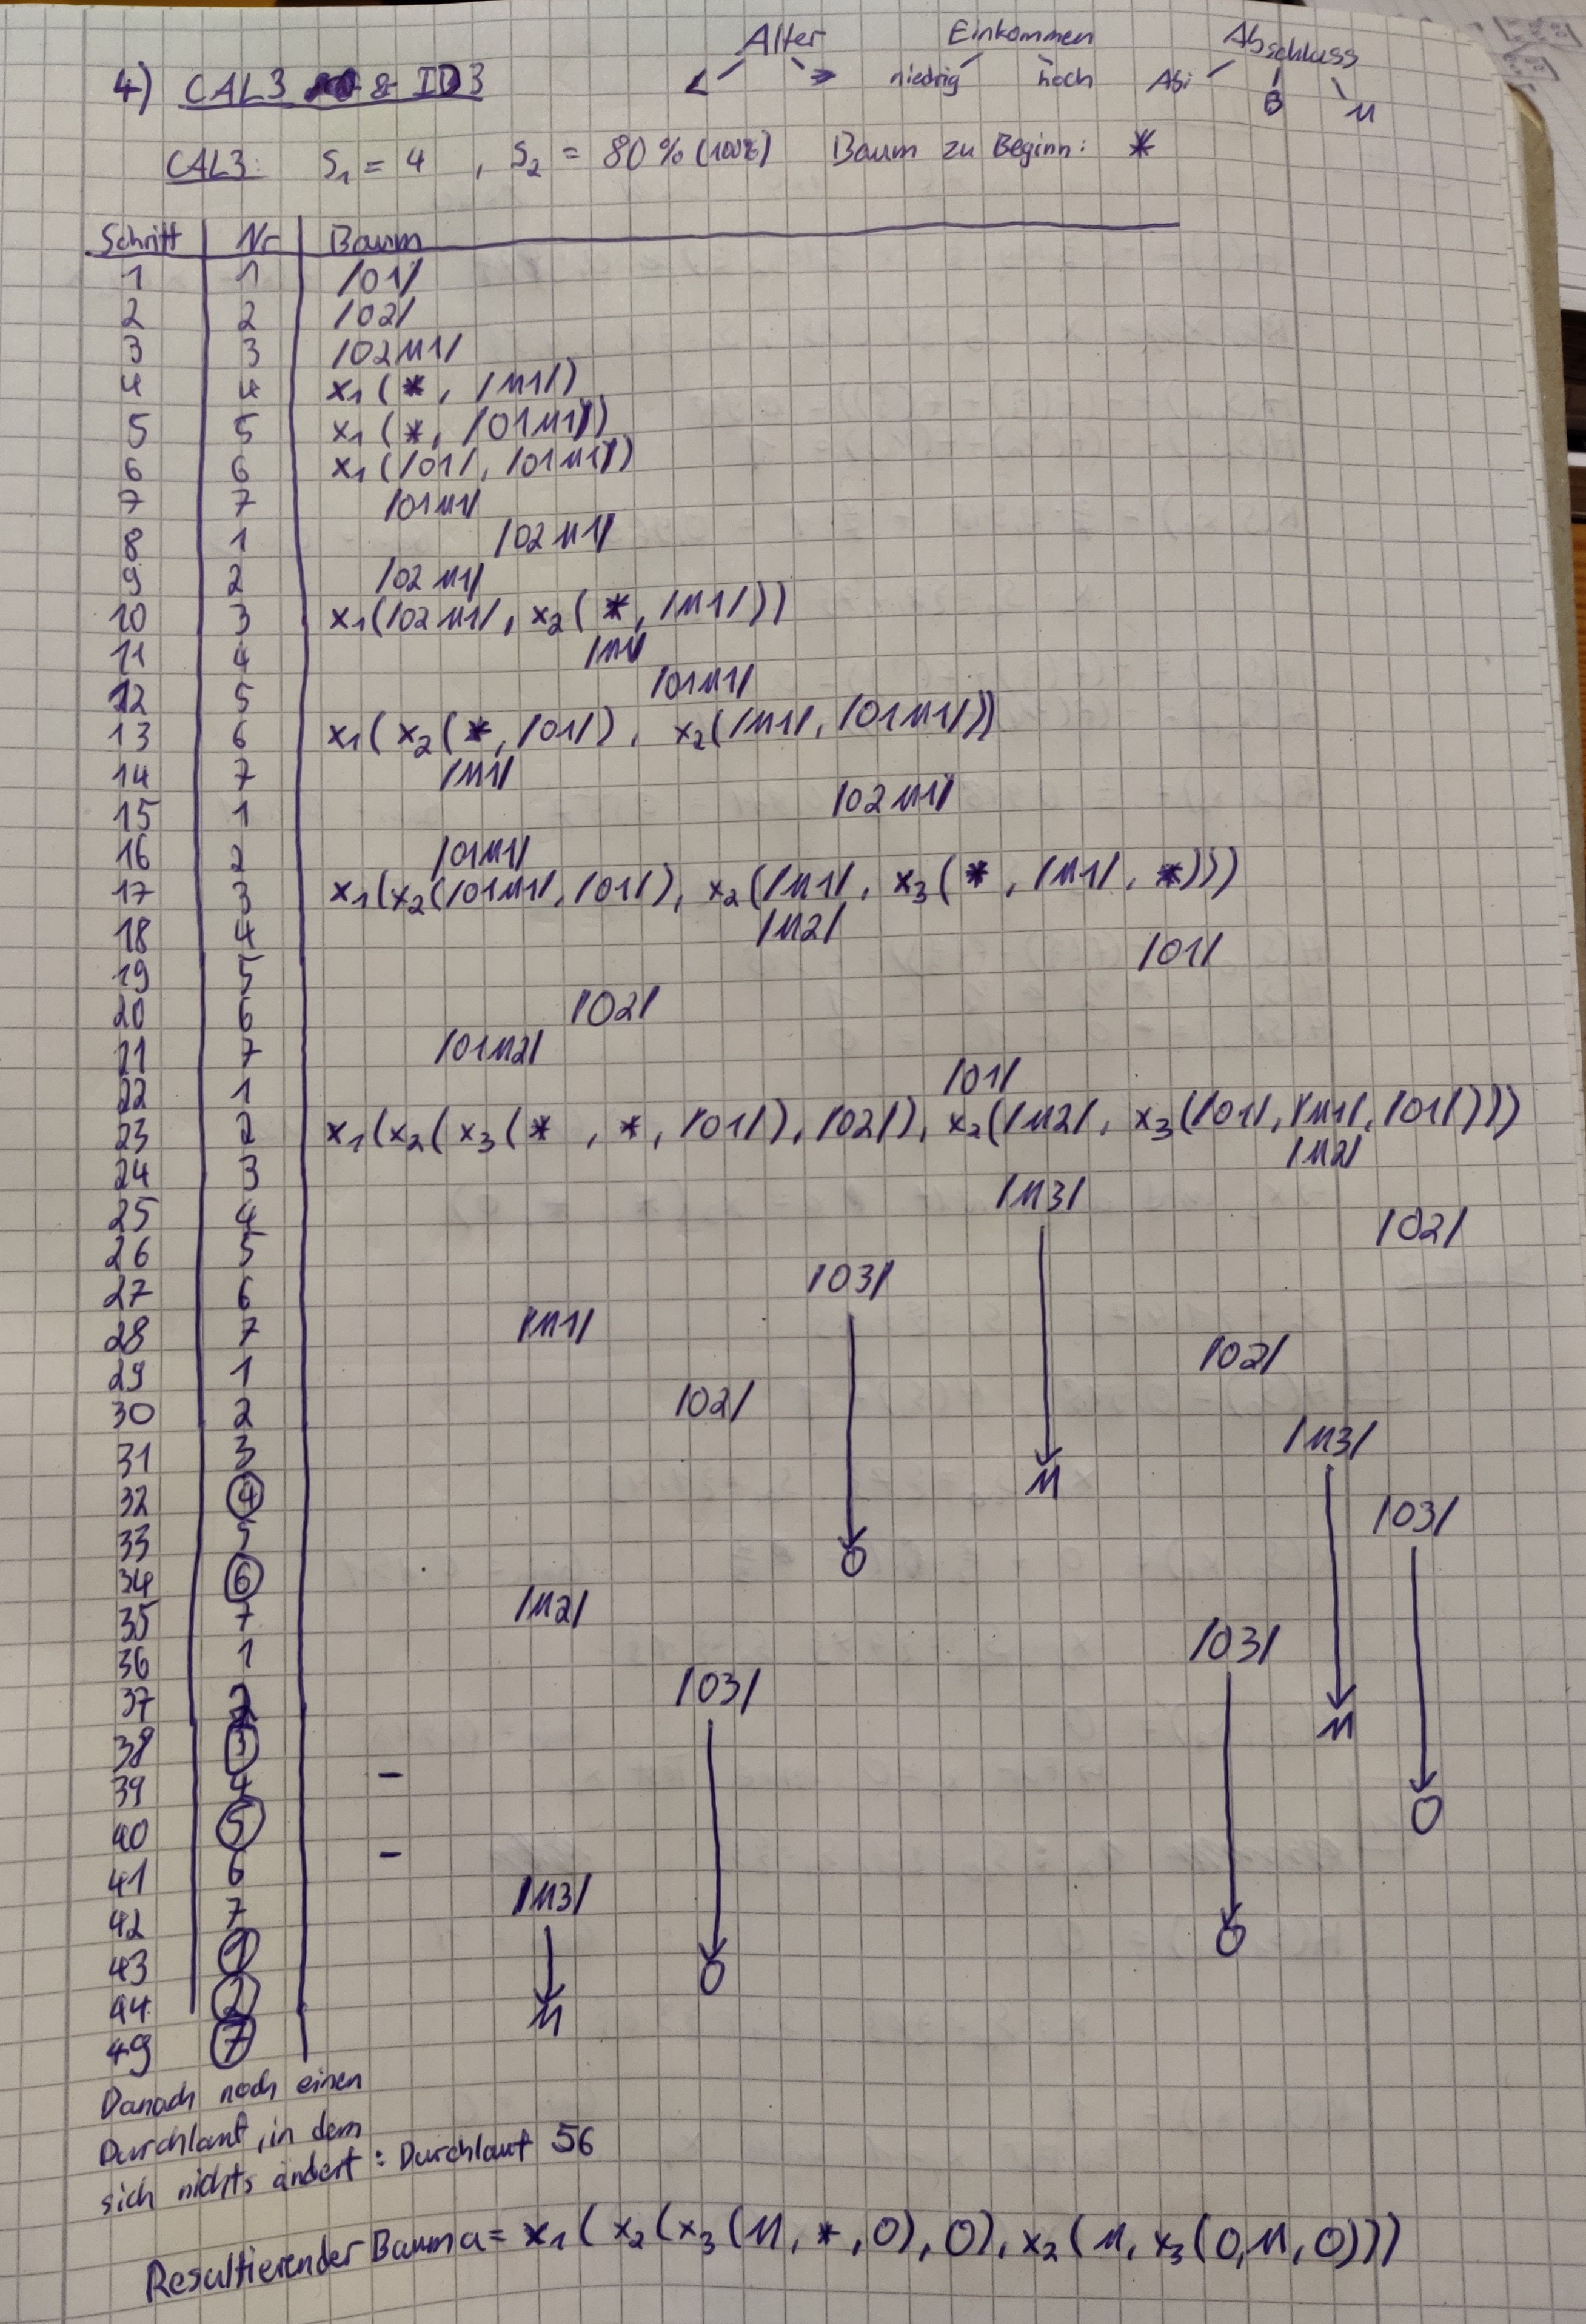 Alter Einkommen Abschluss
< >= niedrig hoch Abi B M
4) CAL3 & ID3
CAL3: S₁ = 4 , S₂ = 80 % (100%) Baum zu Beginn: *
Schritt Nr Baum
1 1 /O1/
2 2 /O2/
3 3 /O2M1/
4 4 x₁ ( *, /M1/)
5 5 x₁ ( *, /O1M1/)
6 6 x₁ (/O1/, /O1M1/)
7 7 /O1M1/
8 1 /O2M1/
9 2 /O2M1/
10 3 x₁(/O2M1/, x₂( *, /M1/))
11 4 /M1/
12 5 /O1M1/
13 6 x₁( x₂( *, /O1/), x₂(/M1/, /O1M1/))
14 7 /M1/
15 1 /O2M1/
16 2 /O1M1/
17 3 x₁(x₂(/O1M1/, /O1/), x₂(/M1/, x₃( *, /M1/, *)))
18 4 /M2/
19 5 /O1/
20 6 /O2/
21 7 /O1M2/
22 1 /O1/
23 2 x₁(x₂( x₃( * , *, /O1/), /O2/), x₂(/M2/, x₃(/O1/, /M1/, /O1/)))
24 3 /M2/
25 4 /M3/
26 5 /O2/
27 6 /O3/
28 7 /M1/
29 1 /O2/
30 2 /O2/
31 3 /M3/
32 4 M
33 5 /O3/
34 6 O
35 7 /M2/
36 1 /O3/
37 2 /O3/
38 3 M
39 4 –
40 5 O
41 6 –
42 7 /M3/
43 1 O
44 2 O
49 7 M
Danach noch einen
Durchlauf, in dem
sich nichts ändert : Durchlauf 56
Resultierender Baum a = x₁ ( x₂(x₃(M, *, O), O), x₂(M, x₃(O,M,O)))